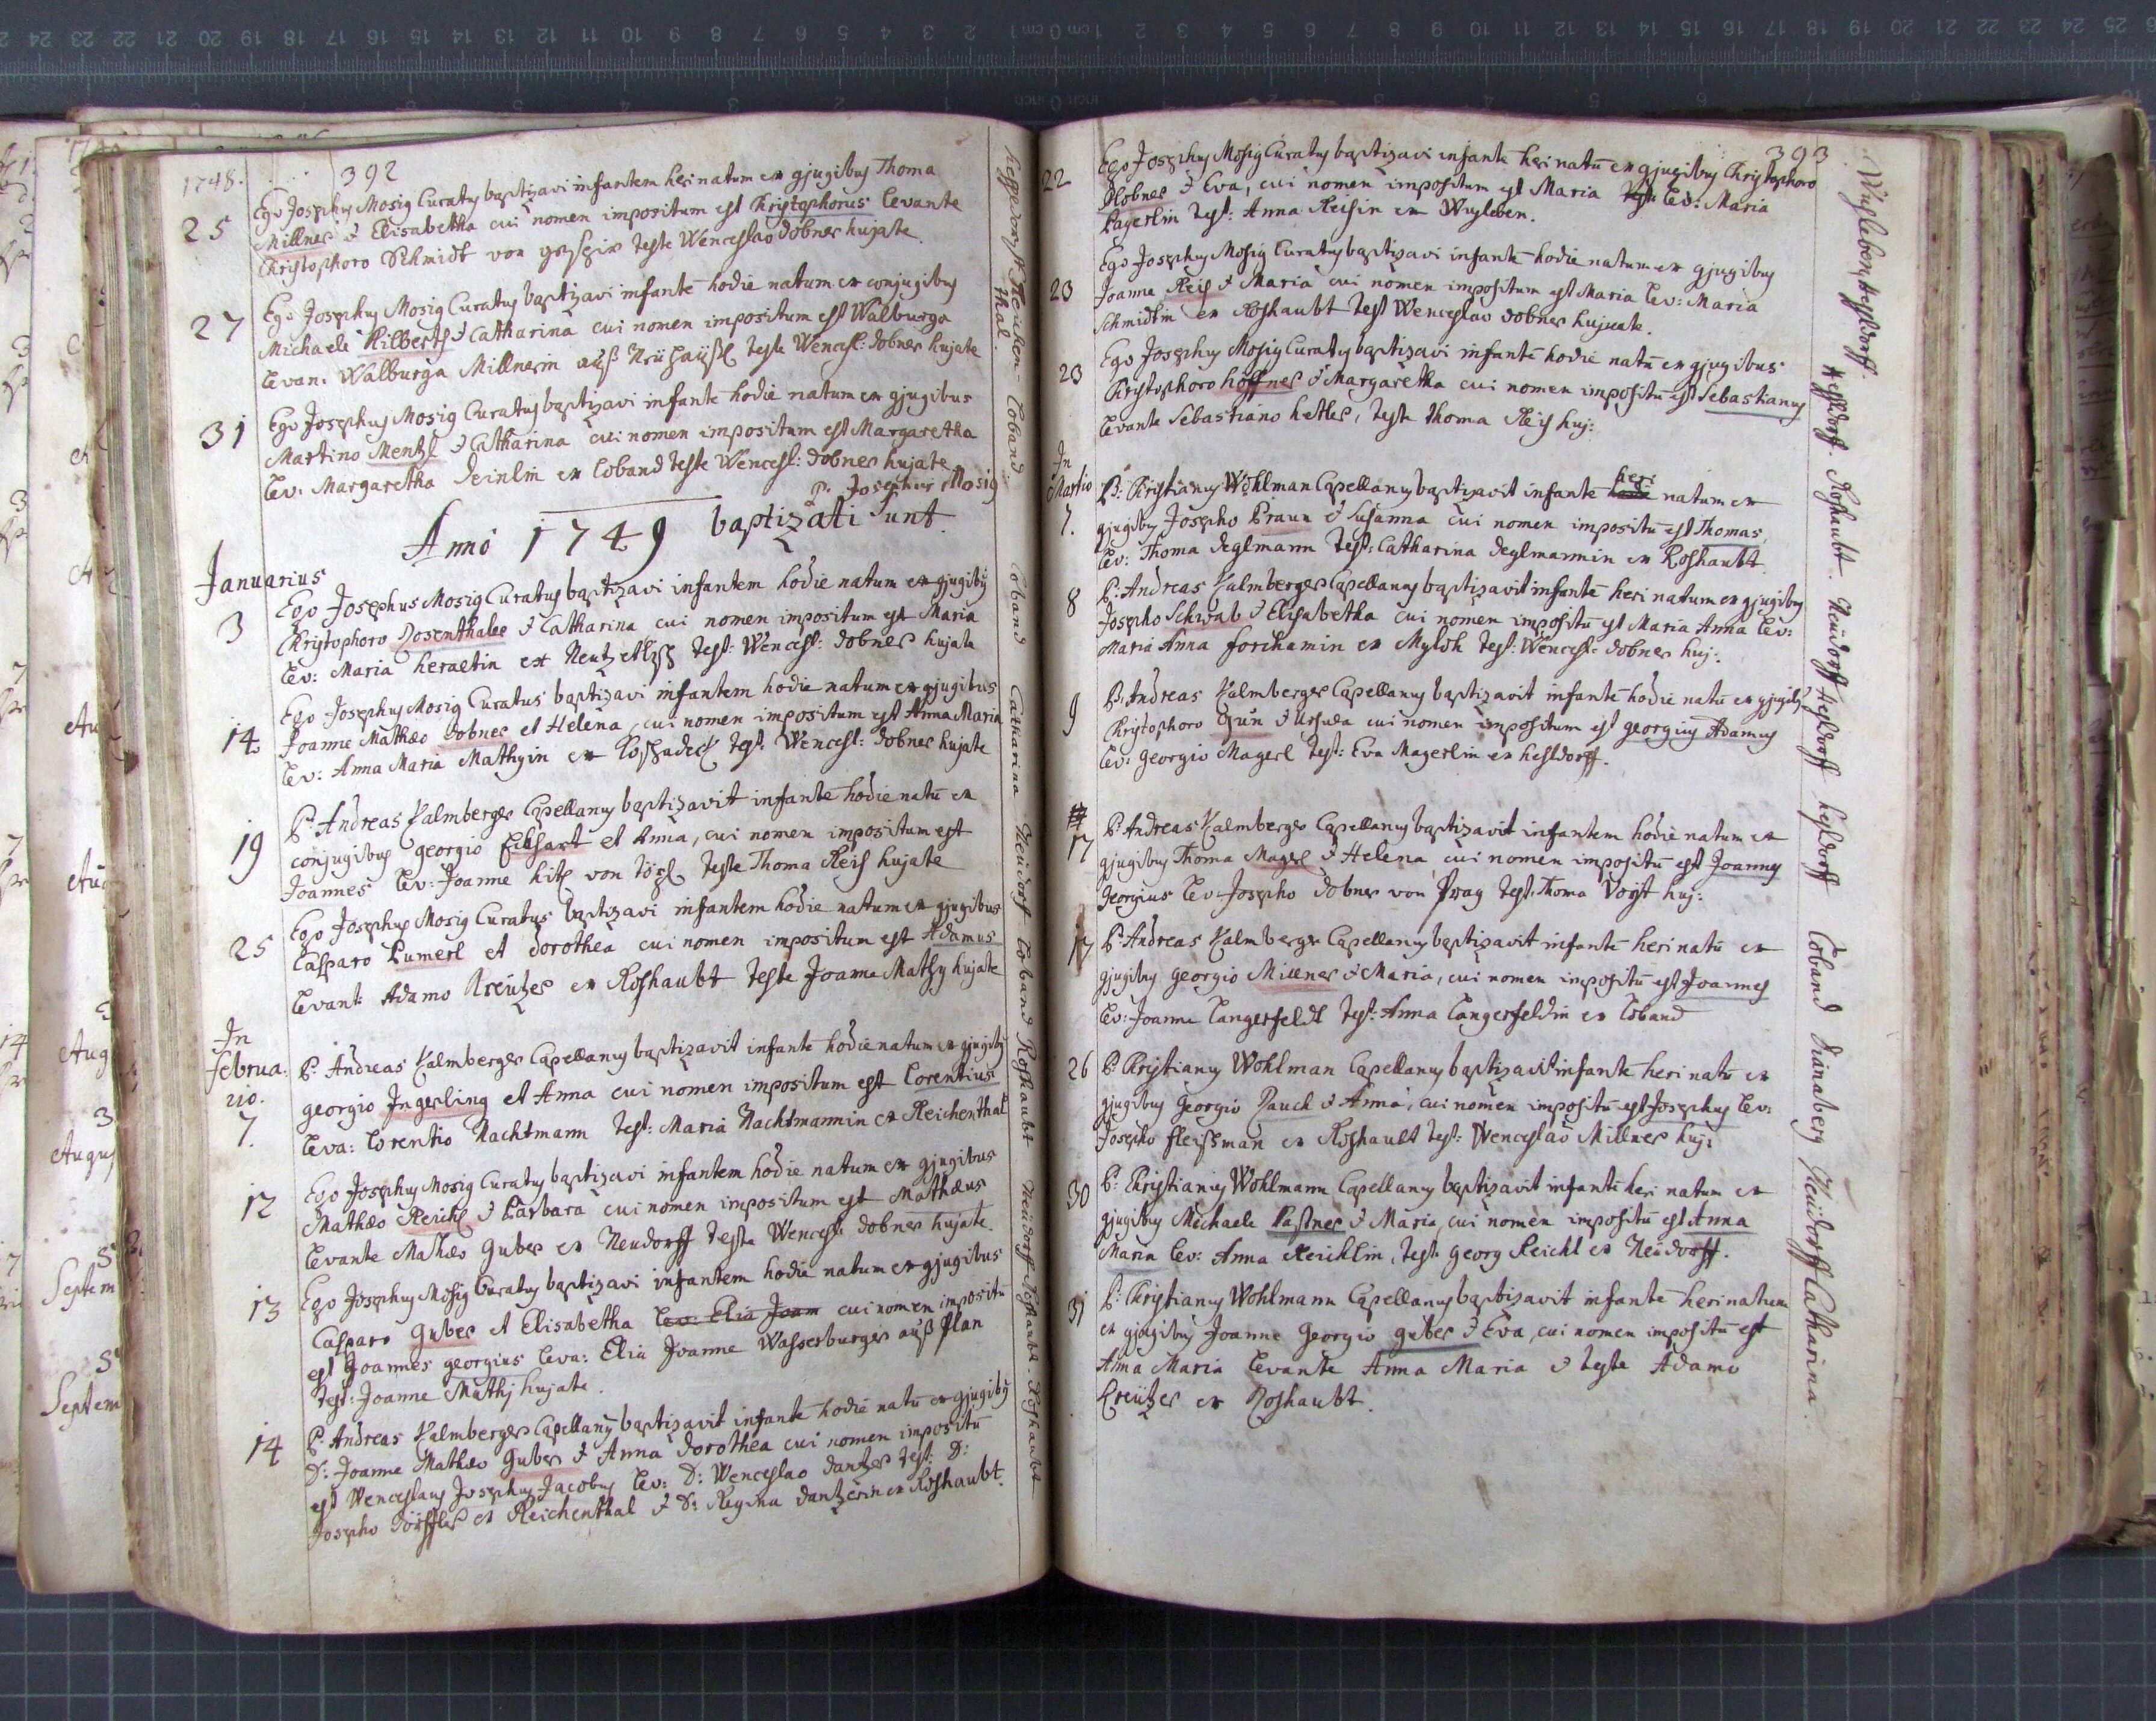 1748.
392
25
Ego Josephus Mosig Curatus baptizavi infantem heri natum ex gjugibus Thoma
Millner & Elisabetha cui nomen impositum est Christophorus levante
Christophoro Schmidt von teste Wenceslao dobner hujate.
27
Ego Josephus Mosig Curatus baptizavi infante hodie natum ex conjugibus
Michaele Hilberth & Catharina cui nomen impositum est Walburga
levan: Walburga Millnerin auß teste Wencesl: dobner hujate
31
Ego Josephus Mosig Curatus baptizavi infante hodie natum ex gjugibus
Martino Mentzl & Catharina cui nomen impositum est Margaretha
lev: Margaretha Deinlin ex loband teste Wencesl: dobner hujate
P. Josephus Mosig
Anno 1749 baptizati sunt
Januarius
3
Ego Josephus Mosig Curatus baptizavi infantem hodie natum ex gjugibus
Christophoro Rosenthaler & Catharina cui nomen impositum est Maria
lev: Maria test: Wencesl: dobner hujate
14
Ego Josephus Mosig Curatus baptizavi infantem hodie natum ex gjugibus
Joanne Mathæo dobner et Helena, cui nomen impositum est Anna Maria
lev: Anna Maria Mathyin ex test: Wencesl: dobner hujate
19
P: Andreas Kalmberger Capellanus baptizavit infante hodie natu ex
conjugibus georgio et Anna, cui nomen impositum est
Joannes lev: Joanne von teste Thoma Reis hujate
25
Ego Josephus Mosig Curatus baptizavi infantem hodie natum ex gjugibus
Casparo Pumerl et dorothea cui nomen impositum est Adamus
levant: Adamo Kreützer ex Roshaubt teste Joanne Mathy hujate
In
februa:
rio.
7.
P: Andreas Kalmberger Capellanus baptizavit infante hodie natum ex gjugibus
georgio Ingerling et Anna cui nomen impositum est Lorentius
leva: Lorentio Nachtmann test: Maria Nachtmannin ex Reichenthal
12
Ego Josephus Mosig Curatus baptizavi infantem hodie natum ex gjugibus
Mathæo Reichl & Barbara cui nomen impositum est Mathæus
levante Mathæo Guber ex Neudorff teste Wencesl: dobner hujate.
13
Ego Josephus Mosig Curatus baptizavi infantem hodie natum ex gjugibus
Casparo Guber et Elisabetha lev: Elia Joan cui nomen impositu
est Joannes georgius leva: Elia Joanne Wasserburger auß plan
test: Joanne Mathj hujate.
14
P: Andreas Kalmberger Capellanus baptizavit infante hodie natu ex gjugibus
D: Joanne Mathæo Guber & Anna dorothea cui nomen impositu
est Wenceslaus Josephus Jacobus lev: D: Wenceslao dantzer test: D:
Josepho dörffler ex Reichenthal & D: Regina dantzerin ex Roshaubt.
Reichen-
thal.
loband
loband
Catharina
Neudorf
loband
Roshaubt
Neudorff
Roshaubt.
Roshaubt
393
22
Ego Josephus Mosig Curatus baptizavi infante heri natu ex gjugibus Christophoro
& Eva, cui nomen impositum est Maria test: lev: Maria
Pagerlin test: Anna Reisin ex Wusleben.
23
Ego Josephus Mosig Curatus baptizavi infante hodie natum ex gjugibus
Joanne Reis & Maria cui nomen impositum est Maria lev: Maria
Schmidtin ex Roshaubt test Wenceslao dobner hujuate.
23
Ego Josephus Mosig Curatus baptizavi infante hodie natu ex gjugibus
Christophoro höffner & Margaretha cui nomen impositu est Sebastianus
levante Sebastiano hetler, teste thoma Reis huj:
In
Martio
7.
P: Christianus Wohlman Capellanus baptizavit infante hodie heri natum ex
gjugibus Josepho Praun & Susanna cui nomen impositu est Thomas,
lev: Thoma deglmann test: Catharina deglmannin ex Roshaubt
8
P: Andreas Kalmberger Capellanus baptizavit infante heri natum ex gjugibus
Josepho Schwab & Elisabetha cui nomen impositu est Maria Anna lev:
Maria Anna forchamin ex test: Wencesl: dobner huj:
9
P: Andreas Kalmberger Capellanus baptizavit infante hodie natu ex gjugibus
Christophoro & Ursula cui nomen impositum est georgius Adamus
lev: georgio Magerl test: Eva Magerlin ex hesldorff.
17
P: Andreas Kalmberger Capellanus baptizavit infantem hodie natum ex
gjugibus Thoma Magerl & Helena cui nomen impositu est Joannes
Georgius lev: Josepho dobner von Prag test: Thoma Voyt huj:
17
P: Andreas Kalmberger Capellanus baptizavit infante heri natu ex
gjugibus georgio Millner & Maria, cui nomen impositu est Joannes
lev: Joanne Langerfeldt test: Anna Langerfeldin ex loband
26
P: Christianus Wohlman Capellanus baptizavit infante heri natu ex
gjugibus Georgio Rauch & Anna, cui nomen impositu est Josephus lev:
Josepho fleissman ex Roshaubt test: Wenceslao Millner huj:
30
P: Christianus Wohlmann Capellanus baptizavit infante heri natum ex
gjugibus Michaele Pastner & Maria cui nomen impositu est Anna
Maria lev: Anna Reichlin, test: georg Reichl ex Neüdorff.
31
P: Christianus Wohlmann Capellanus baptizavit infante heri natum
ex gjugibus Joanne Georgio guber & Eva, cui nomen impositu est
Anna Maria levante Anna Maria & teste Adamo
Kreützer ex Roshaubt.
Wusleben
Hesldorff.
Hesldorff.
Roshaubt.
Neüdorff
Hesldorff
hesldorff
loband
dianaberg
Neüdorff
Catharina.